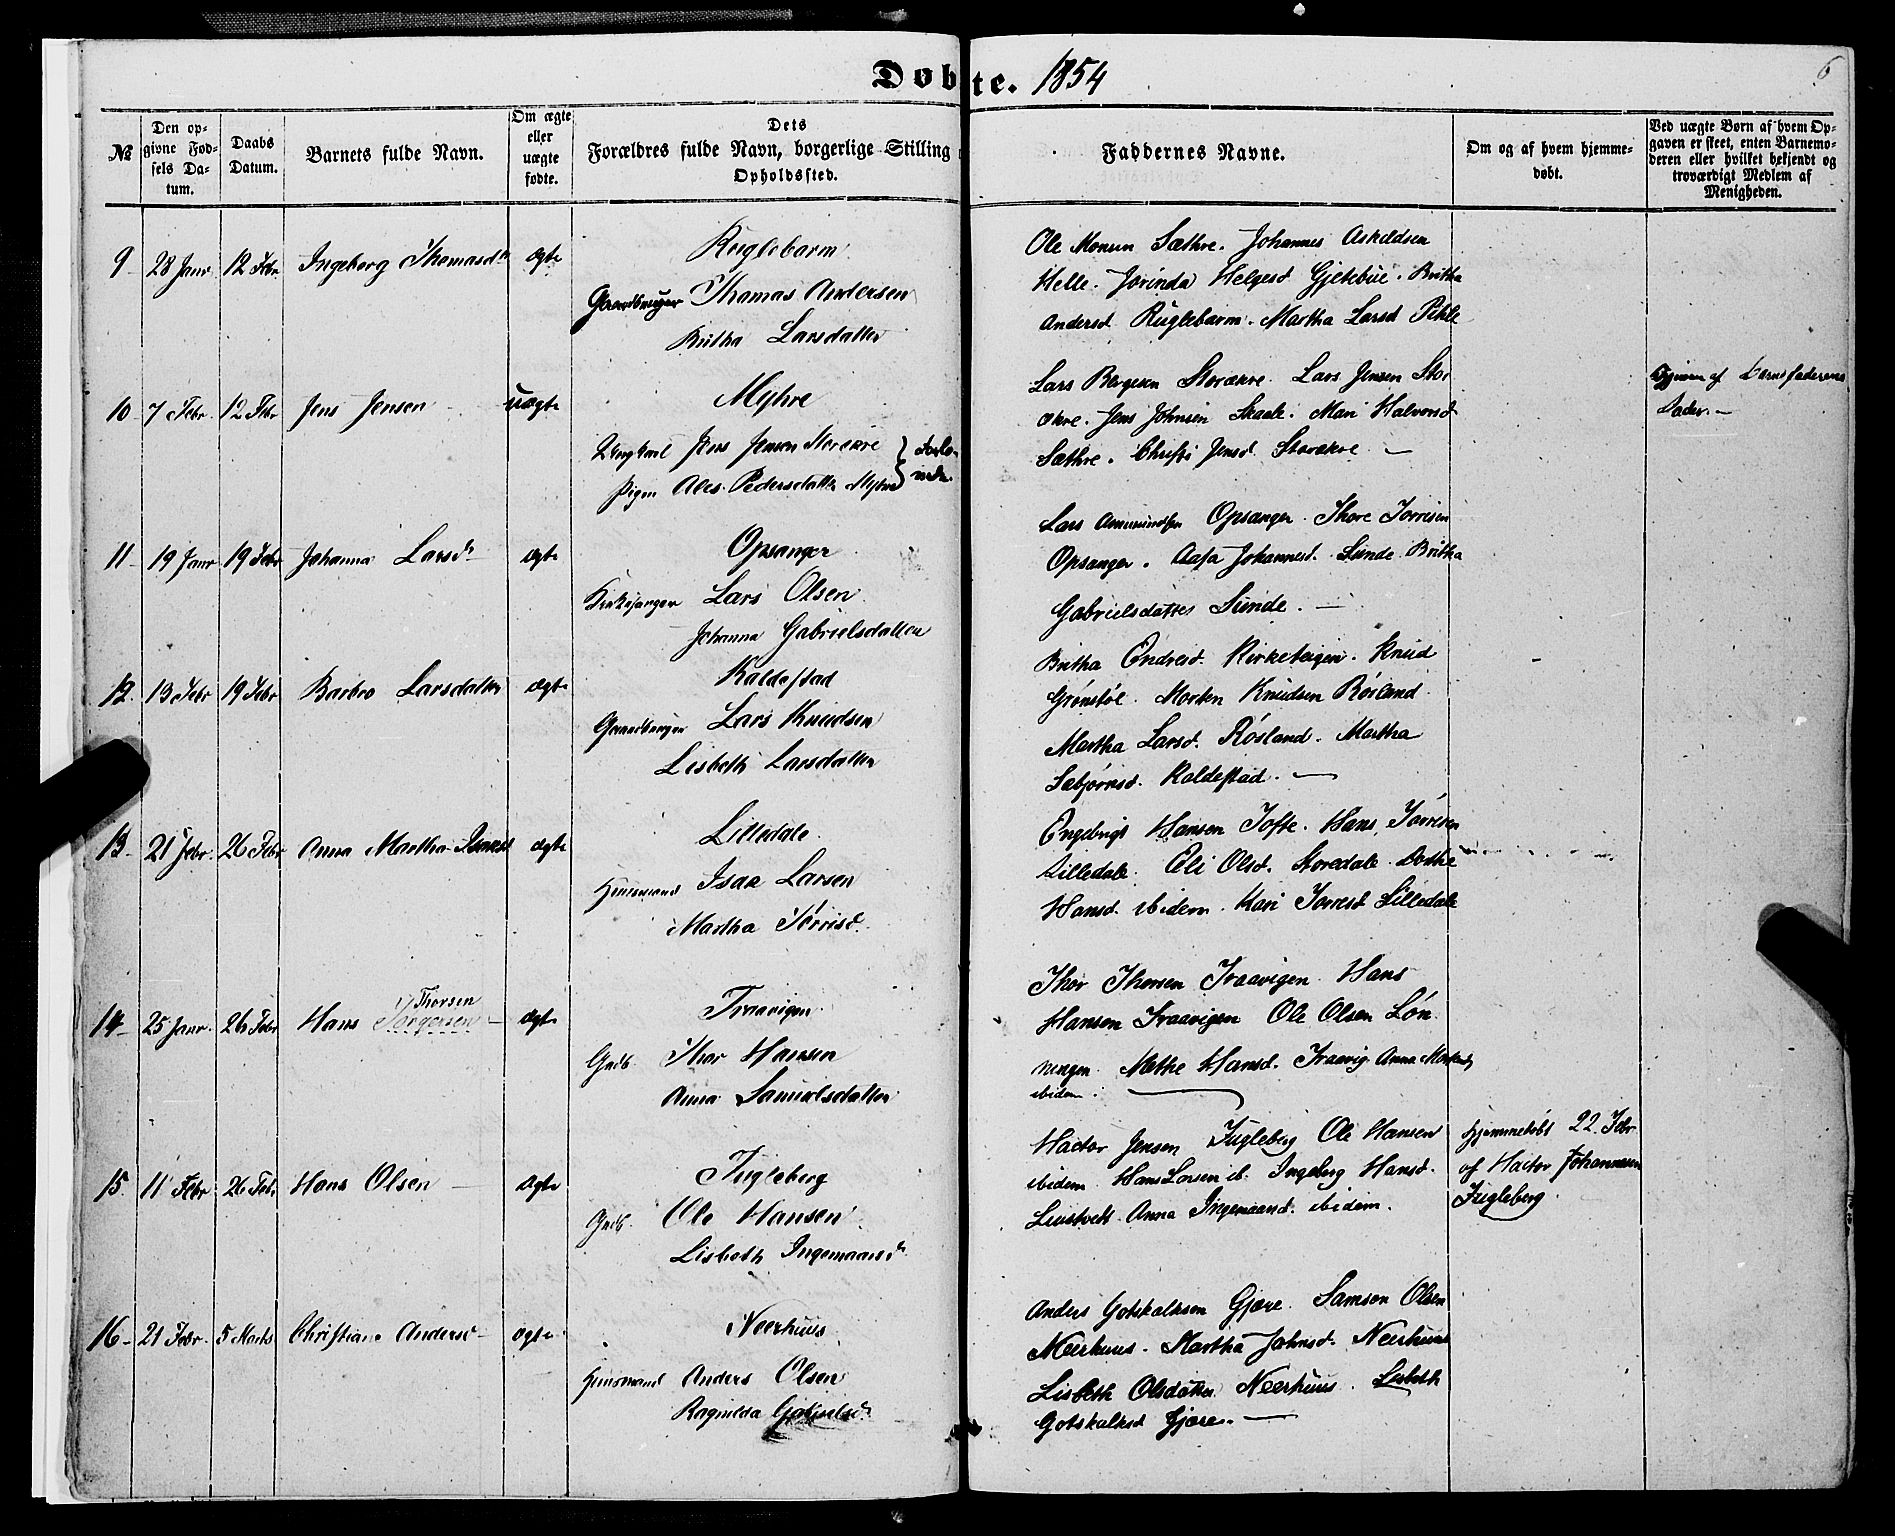 Døbte. 1854
6
№
Den op-
givne Fød-
sels Da-
tum.
Daabs
Datum.
Barnets fulde Navn.
Om ægte
eller
uægte
fødte.
Dets
Forældres fulde Navn, borgerlige Stilling
Opholdssted.
Faddernes Navne.
Om og af hvem hjemme-
døbt.
Ved uægte Børn af hvem Op-
gaven er skeet, enten Barnemo-
deren eller hvilket bekjendt og
troværdigt Medlem af
Menigheden.
9 28 Janr 12 Febr Ingeborg Thomasdr ægte
Ruglebarm
Gaardbruger Thomas Andersen
Britha Larsdatter
Ole Monsen Sæthre. Johannes Askeldsen
Helle. Jorinda Helgesd Gjettebüe. Britha
Andersd Ruglebarm. Martha Larsd Pihle
10 7 Febr. 12 Febr Jens Jensen uægte
Myhre
Ungkarl Jens Jensen Storækre
Pigen Ales Pedersdatter Myhre
Forlo-
vede.
Lars Bergesen Storækre. Lars Jensen Stor
ækre. Jens Johnsen Skaale. Mari Halvorsd
Sæthre. Christi Jensd. Storækre
af Barnefaderens
Fader.
11 19 Janr 19 Febr Johanna Larsdr ægte
Opsanger
Kirkesanger Lars Olsen
Johanna Gabrielsdatter
Lars Amundsen Opsanger. Thore Torrisen
Opsanger. Aasa Johannesd. Sunde. Britha
Gabrielsdatter Sunde.
12. 13 Febr 19 Febr Barbro Larsdatter ægte
Kaldestad
Gaardbruger Lars Knudsen
Lisbeth Larsdatter
Britha Endresd. Kirketeigen. Knud
Grønstøl. Morten Knudsen Røsland.
Martha Larsd. Røsland. Martha
Sæbjørnsd. Kaldestad.
13. 21 Febr. 26 Febr Anna Martha Isaksd ægte
Lilledale.
Huusmand Isac Larsen
Martha Tørrisd.
Engebrigt Hansen Tofte. Hans Tørrisen
Lilledale. Eli Olsd. Storedale. Dorthe
Hansd. ibidem. Kari Torresd Lilledale
14 25 Janr. 26 Febr Hans Thorsen Torgersen ægte
Traavigen
Grdb. Thor Hansen
Anna Samuelsdatter
Thor Thorsen Traavigen. Hans
Hansen Traavigen Ole Olsen Løn
ningen. Methe Hansd. Traavig. Anna
ibidem.
15. 11 Febr 26 Febr Hans Olsen ægte
Fugleberg
Grdb. Ole Hansen
Lisbeth Ingemaansdr
Hactor Jensen Fugleberg Ole Hansen
ibidem Hans Larsen ib. Ingeberg Hansd.
Anna Ingemaansd. ibidem.
hjemmedøbt 22 Febr
af Hactor Johannesen
Fugleberg.
16 21 Febr. 5 Marts Christiane Andersd ægte
Neerhuus
Huusmand Anders Olsen
Ragnilda
Anders Gotskalksen Gjære. Samson Olsen
Neerhuus. Martha Johnsd. Neerhuus
Lisbeth Olsdatter Neerhuus. Lisbeth
Gotskalksd Gjære.